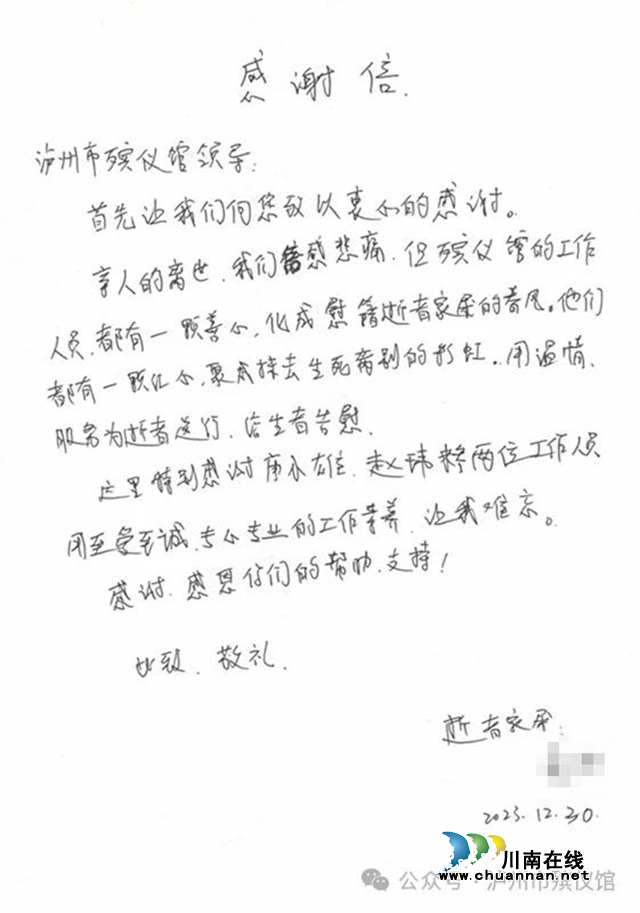 感谢信.
泸州市殡仪馆领导:
首先让我们向您致以衷心的感谢。
亲人的离世,我们倍感悲痛,但殡仪馆的工作
人员,都有一颗善心,化成慰藉逝者家属的春风。他们
都有一颗红心,聚成抹去生死离别的彩虹。用温情,
服务为逝者送行,给生者告慰.
这里特别感谢 雄、赵玮 两位工作人员
用至爱至诚,专心专业的工作素养,让我难忘。
感谢、感恩你们的帮助、支持!
此致、敬礼.
逝者家属:
2023.12.30.
川南在线
www.chuannan.net
公众号·泸州市殡仪馆